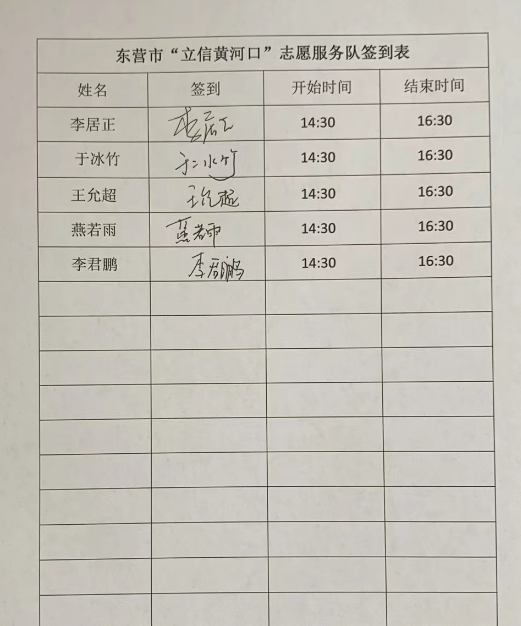 东营市“立信黄河口”志愿服务队签到表
姓名 签到 开始时间 结束时间
李居正 李居正 14:30 16:30
于冰竹 于冰竹 14:30 16:30
王允超 王允超 14:30 16:30
燕若雨 燕若雨 14:30 16:30
李君鹏 李君鹏 14:30 16:30